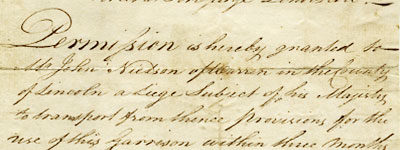 Permission is hereby granted to
Mr John Nudson of Warren in the County
of Lincoln a Liege Subject of his Majesty
to transport from thence provisions for the
use of this Garrison within three months